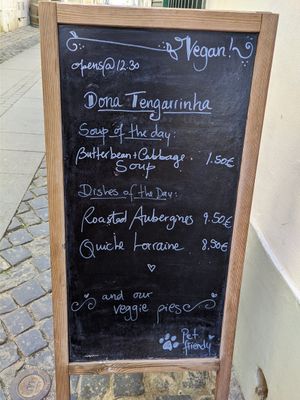 Vegan!
opens@12.30
Dona Tengarrinha
Soup of the day:
Butterbean+Cabbage 1.50€
Soup
Dishes of the Day:
Roasted Aubergines 9.50€
Quiche Lorraine 8.50€
and our
veggie pies
Pet
friendly